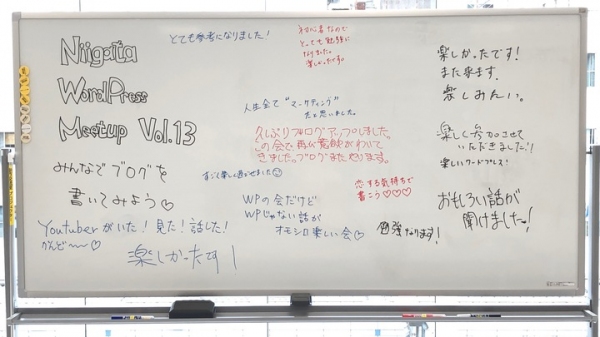 Niigata
WordPress
Meetup Vol.13
みんなでブログを
書いてみよう♡
Youtuberがいた！見た！話した！
楽しかったです！
とても参考になりました！
初心者なので
とっても勉強に
なりました。
楽しかったです。
人生全て"マーケティング"
だと思いました。
久しぶりブログアップしました。
この会で再び意欲がわいて
きました。ブログまたやります。
恋する気持ちで
書こう♡♡♡
WPの会だけど
WPじゃない話が
オモシロ楽しい会♡
勉強なります！
楽しかったです！
また来ます。
楽しみたい。
楽しく参加させて
いただきました！
楽しいワードプレス！
おもしろい話が
聞けましたっ！